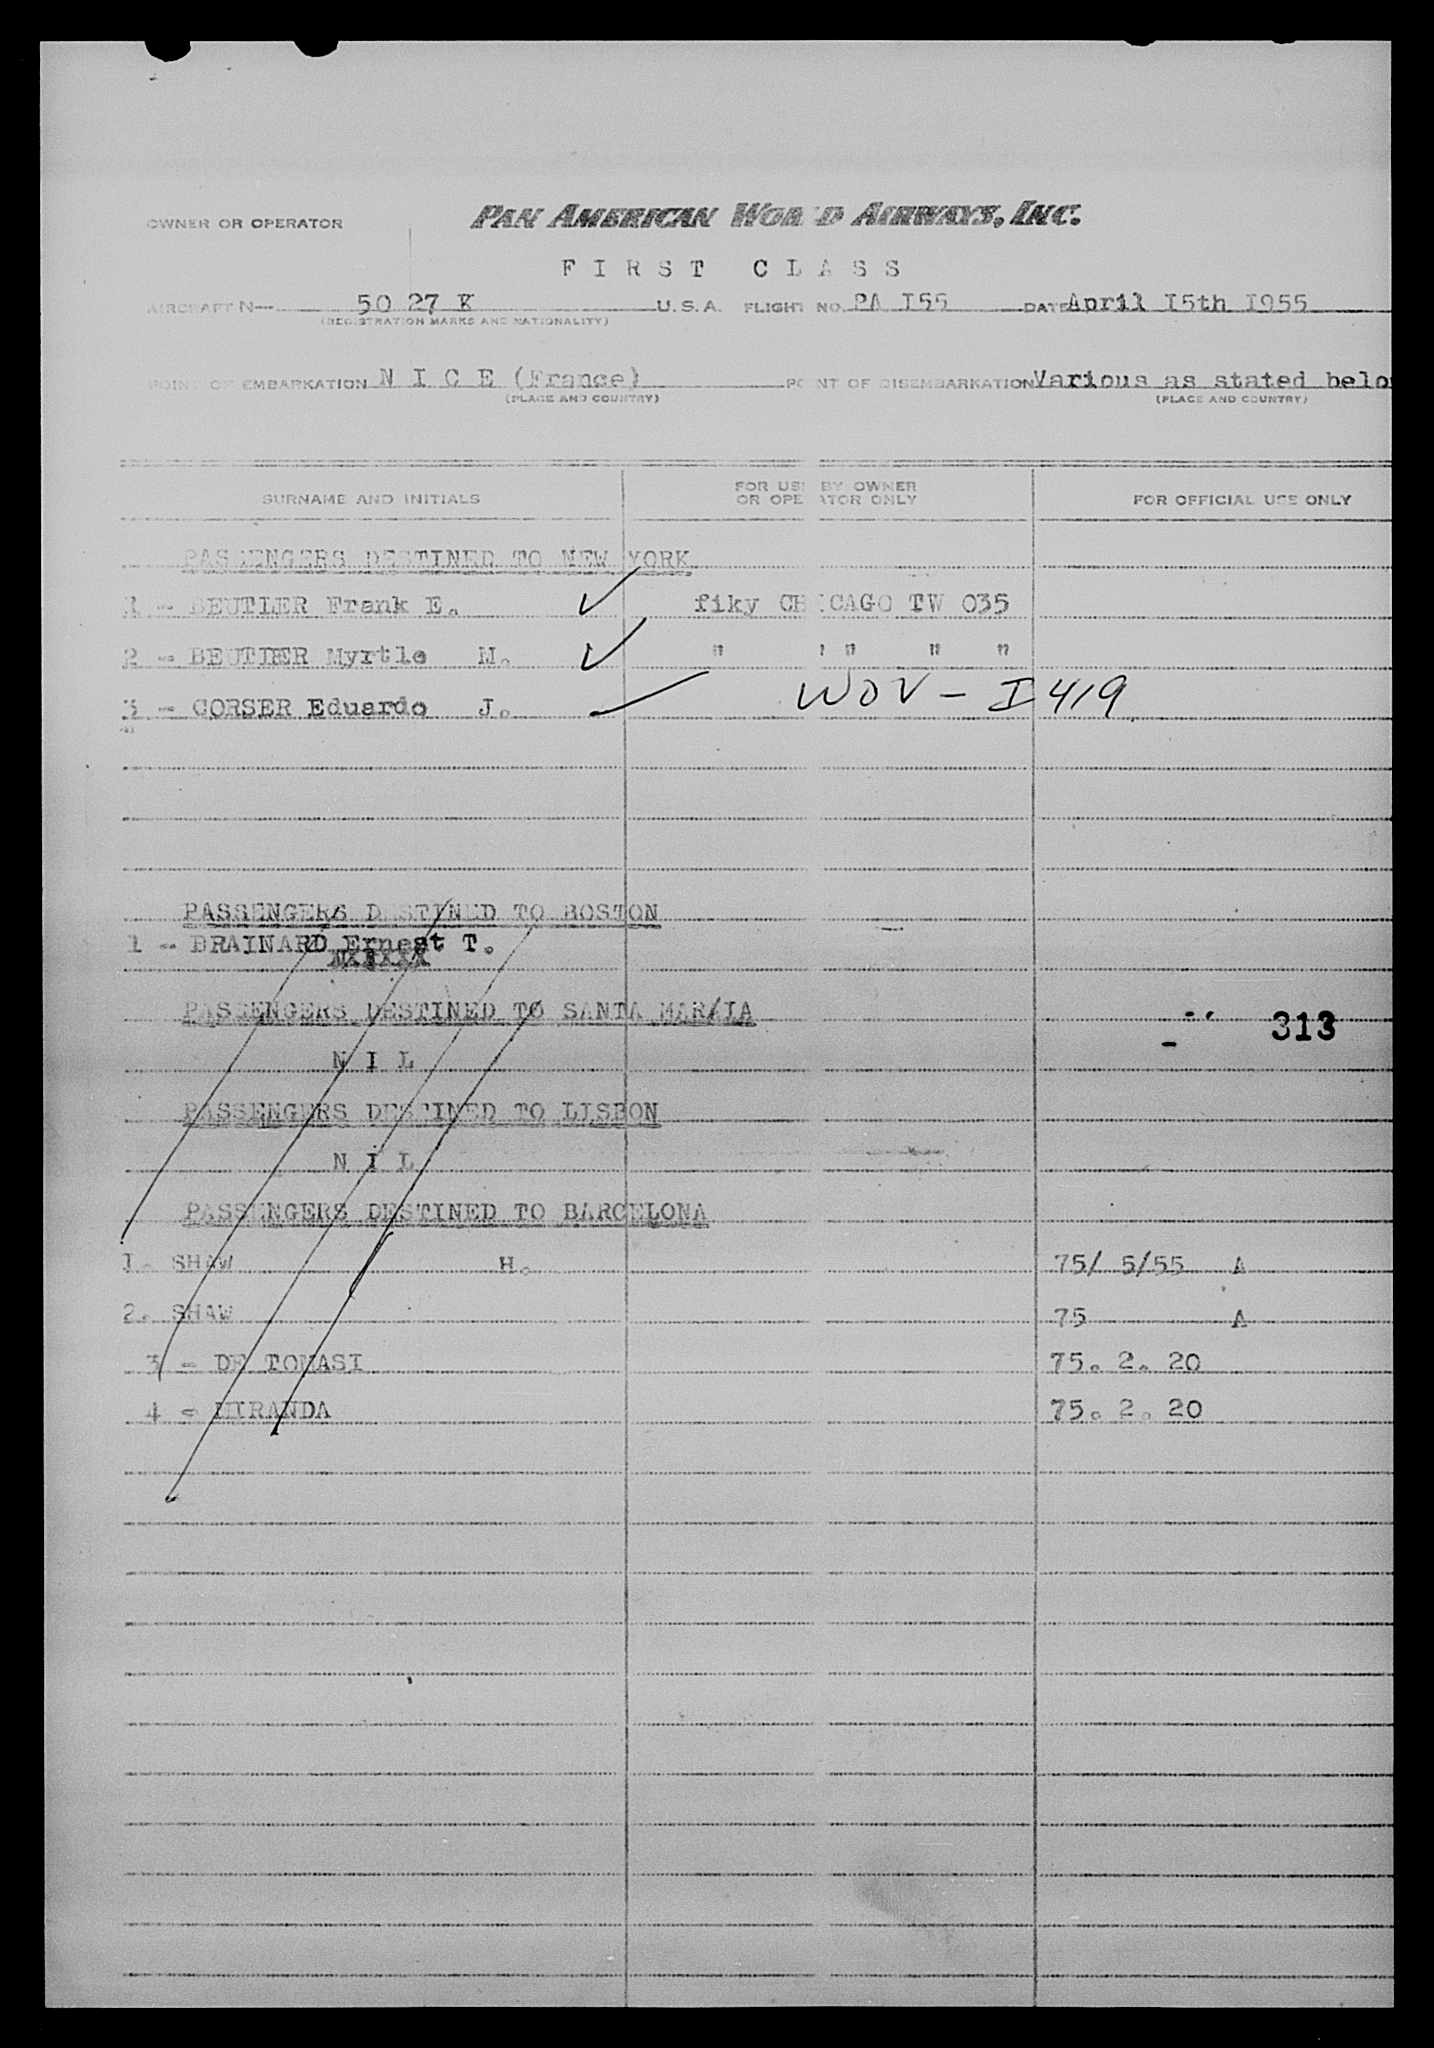 OWNER OR OPERATOR PAN AMERICAN WORLD AIRWAYS, INC.
FIRST CLASS
AIRCRAFT N— 5027 K U.S.A. FLIGHT NO. PA I55 DATE April I5th I955
(REGISTRATION MARKS AND NATIONALITY)
POINT OF EMBARKATION N I C E (France) POINT OF DISEMBARKATION Various as stated belo
(PLACE AND COUNTRY) (PLACE AND COUNTRY)
SURNAME AND INITIALS FOR USE BY OWNER OR OPERATOR ONLY FOR OFFICIAL USE ONLY
PASSENGERS DESTINED TO NEW YORK
1 - BEUTLER Frank E. ✓ fiky CHICAGO TW 035
2 - BEUTLER Myrtle M. ✓ " " " "
3 - CORSER Eduardo J. ✓ WOV - I 419
PASSENGERS DESTINED TO BOSTON
1 - BRAINARD Ernest T.
PASSENGERS DESTINED TO SANTA MAR/IA
313
N I L
PASSENGERS DESTINED TO LISBON
N I L
PASSENGERS DESTINED TO BARCELONA
1. SHAW H. 75/ 5/55 A
2. SHAW 75 A
3 - DE TOMASI 75. 2. 20
4 - MIRANDA 75. 2. 20